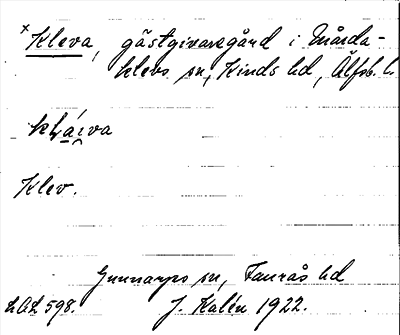 × Kleva, gästgivaregård i Mårda-
klevs sn, Kinds hd, Älfsb. l.
Klev.
Gunnarps sn, Faurås hd
LAL 598. J. Kalén 1922.